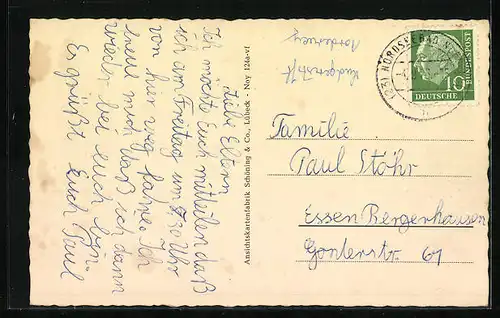 Liebe Eltern
Ich möcht Euch mitteilen daß
ich am Freitag um 7 30 Uhr
von hier weg fahre. Ich
freue mich daß ich dann
wieder bei euch bin.
Es grüßt Euch Paul
Ansichtskartenfabrik Schöning & Co., Lübeck · Noy 124a-vf
Norderney
DEUTSCHE
BUNDESPOST
10
Familie
Paul Stöhr
Essen Bergerhausen
Gonderstr. 67